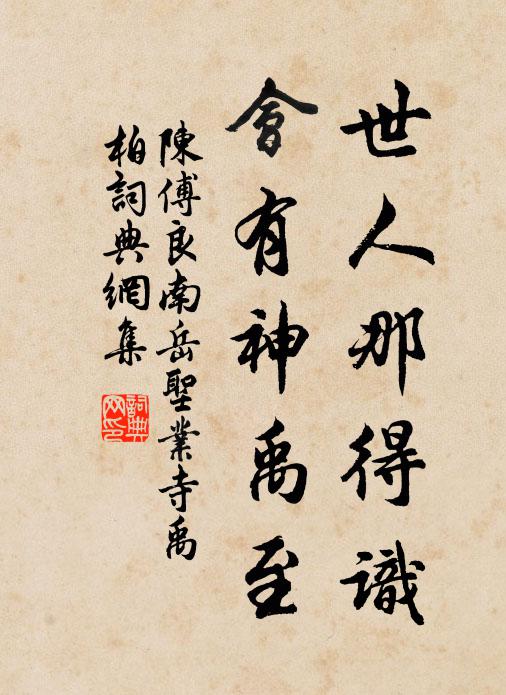 世人那得識
會有神禹至
陳傅良南岳聖業寺禹
柏詞典網集
詞典網印